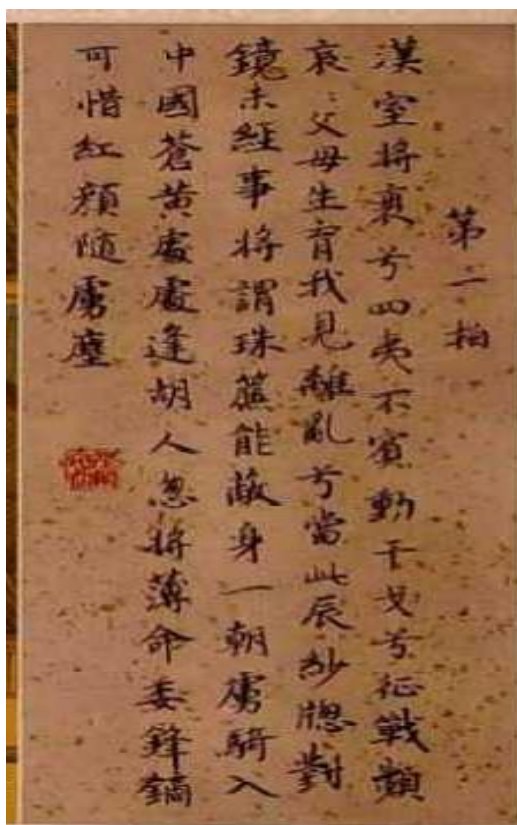 第一拍
漢室將衰兮四夷不賓動干戈兮征戰頻
哀〻父母生育我見離亂兮當此辰紗牕對
鏡未經事將謂珠簾能蔽身一朝虜騎入
中國蒼黃處處逢胡人忽將薄命委鋒鏑
可惜紅顏隨虜塵